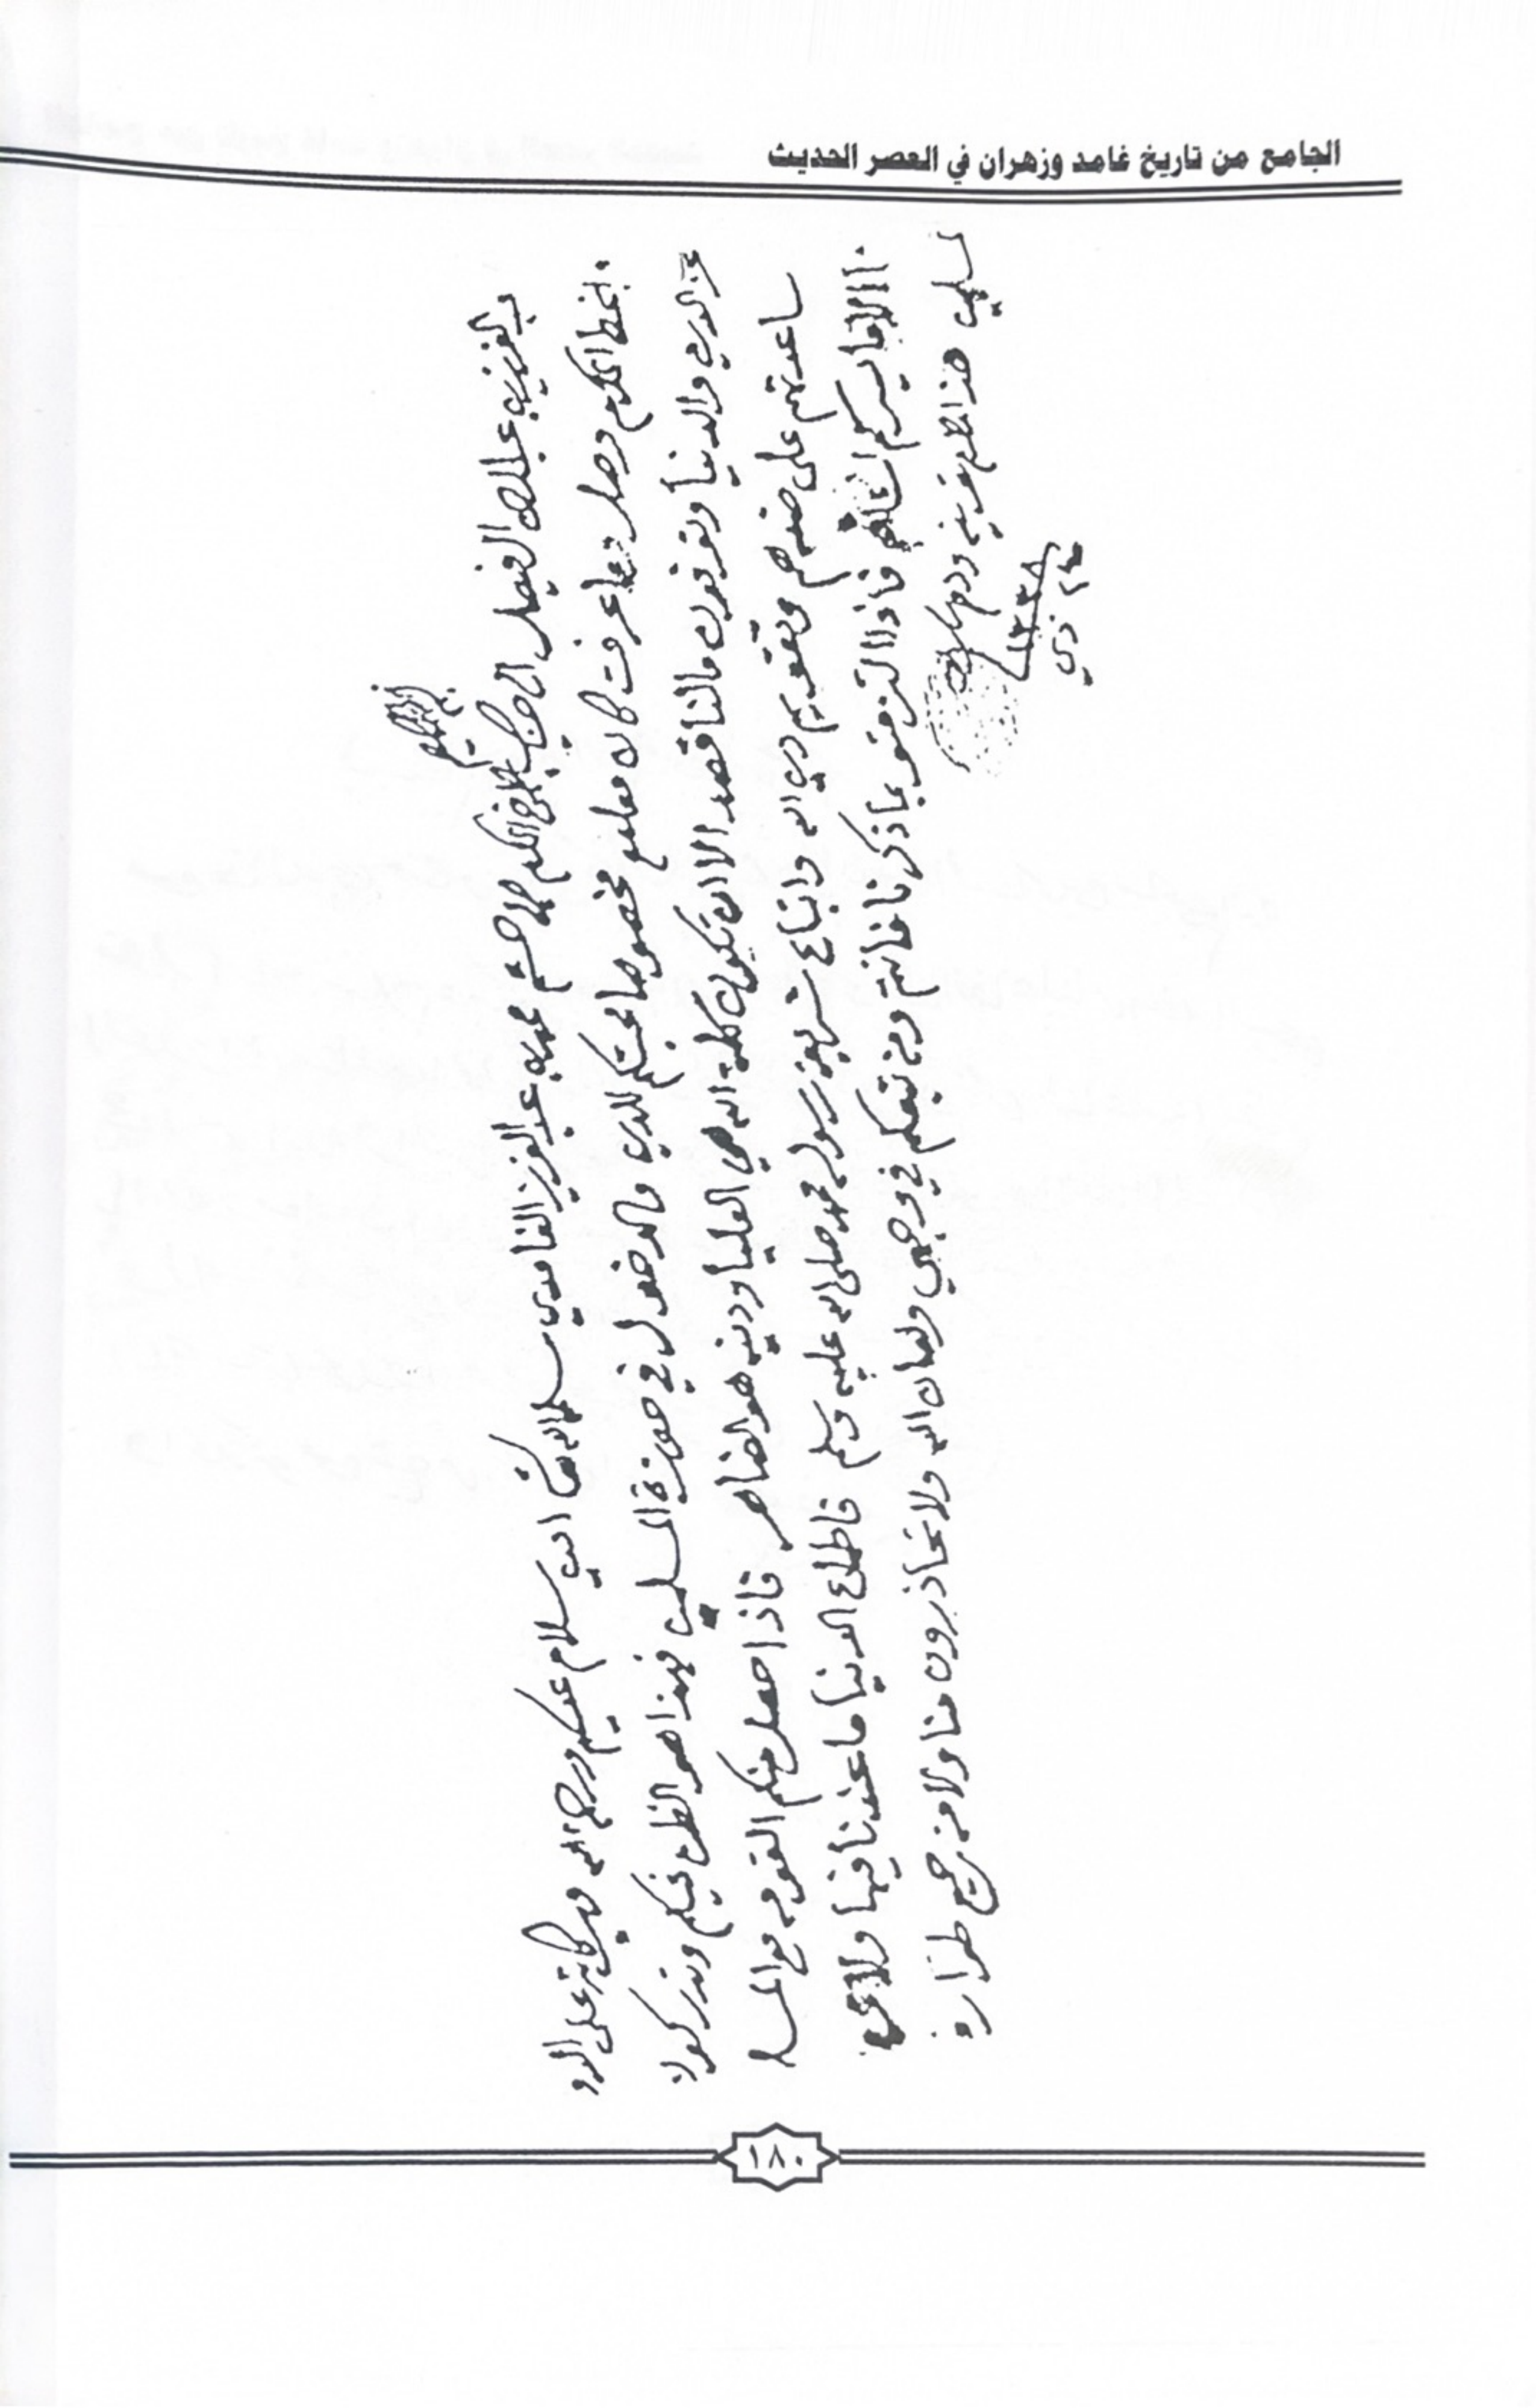 الجامع من تاريخ غامد وزهران في العصر الحديث
بسم الله الرحمن الرحيم
من عبدالعزيز بن عبدالرحمن الفيصل الى جناب الاخ المكرم الاحشم محمد بن عبدالعزيز الغامدي سلمه الله تعالى امين سلام عليكم ورحمة الله وبركاته على الدوام
الخط المكرم وصل وما عرفت كان معلوم مخصوصا محبتكم للدين والدخول في حوزة المسلمين فهذا هو الظن فيكم وتدركون
عز الدين والدنيا وتعرفون مالنا قصد الا ان تكون كلمة الله هي العليا ودينه هو الظاهر فاذا حصل منكم القومه مع
ساعدتهم على ضدهم وتقويم دين الله واتباع شريعة رسوله محمد صلى الله عليه وسلم فاطماع الدنيا ما عندنا فيها ولا
الا ما يسركم انشالله فاذا التزمتو بما ذكرنا فانتم ومن تبعكم في وجهي وامان الله ولا تحاذرون منا ولا من جميع طرارف
المسلمين هذا ما لزم تعريفه ودمتم
١٣٣٨
٢٤ ذي
١٨٠